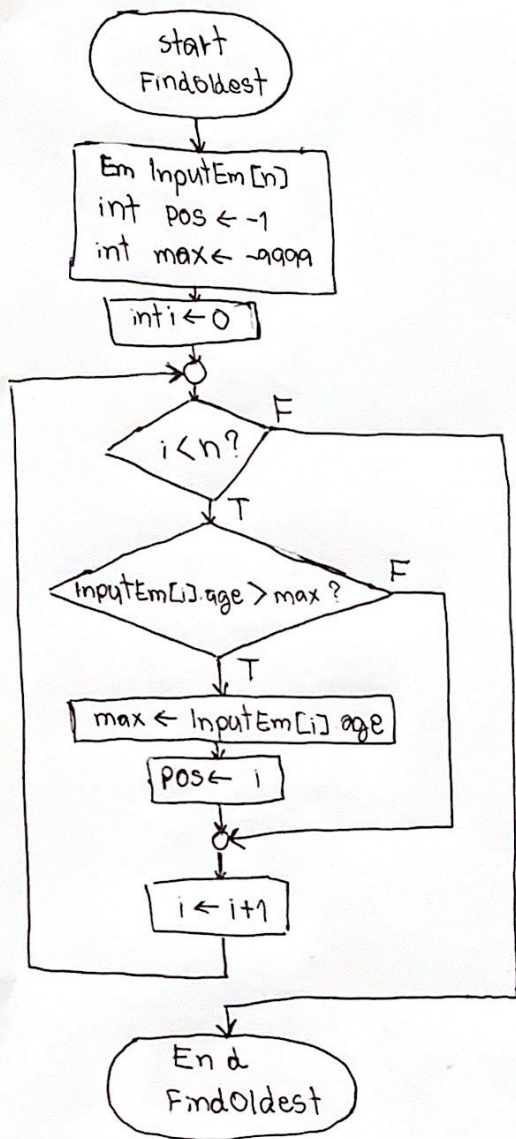 start
Findoldest
Em InputEm[n]
int pos ← -1
int max ← -9999
int i ← 0
i < n?
F
T
InputEm[i].age > max?
F
T
max ← InputEm[i].age
pos ← i
i ← i+1
End
FindOldest